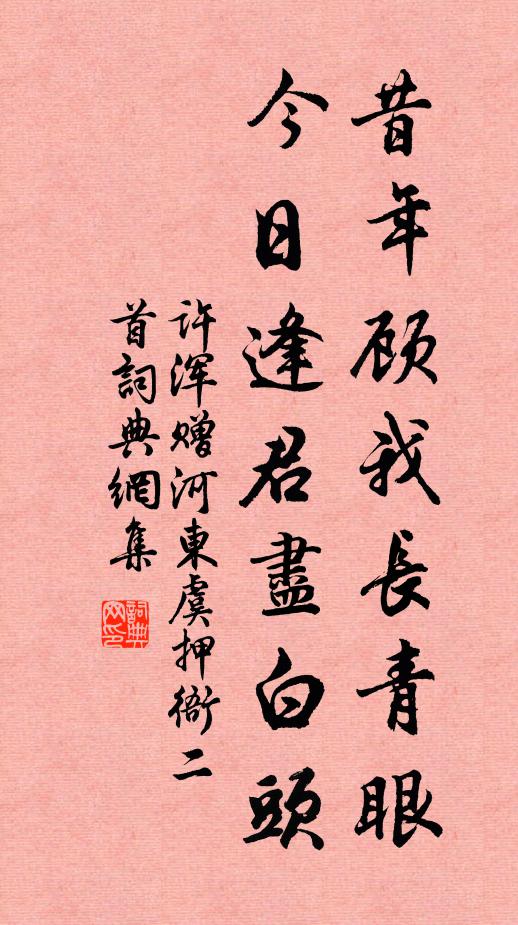 昔年顾我長青眼
今日逢君盡白頭
许浑赠河東虞押衙二
首詞典網集
詞典网印